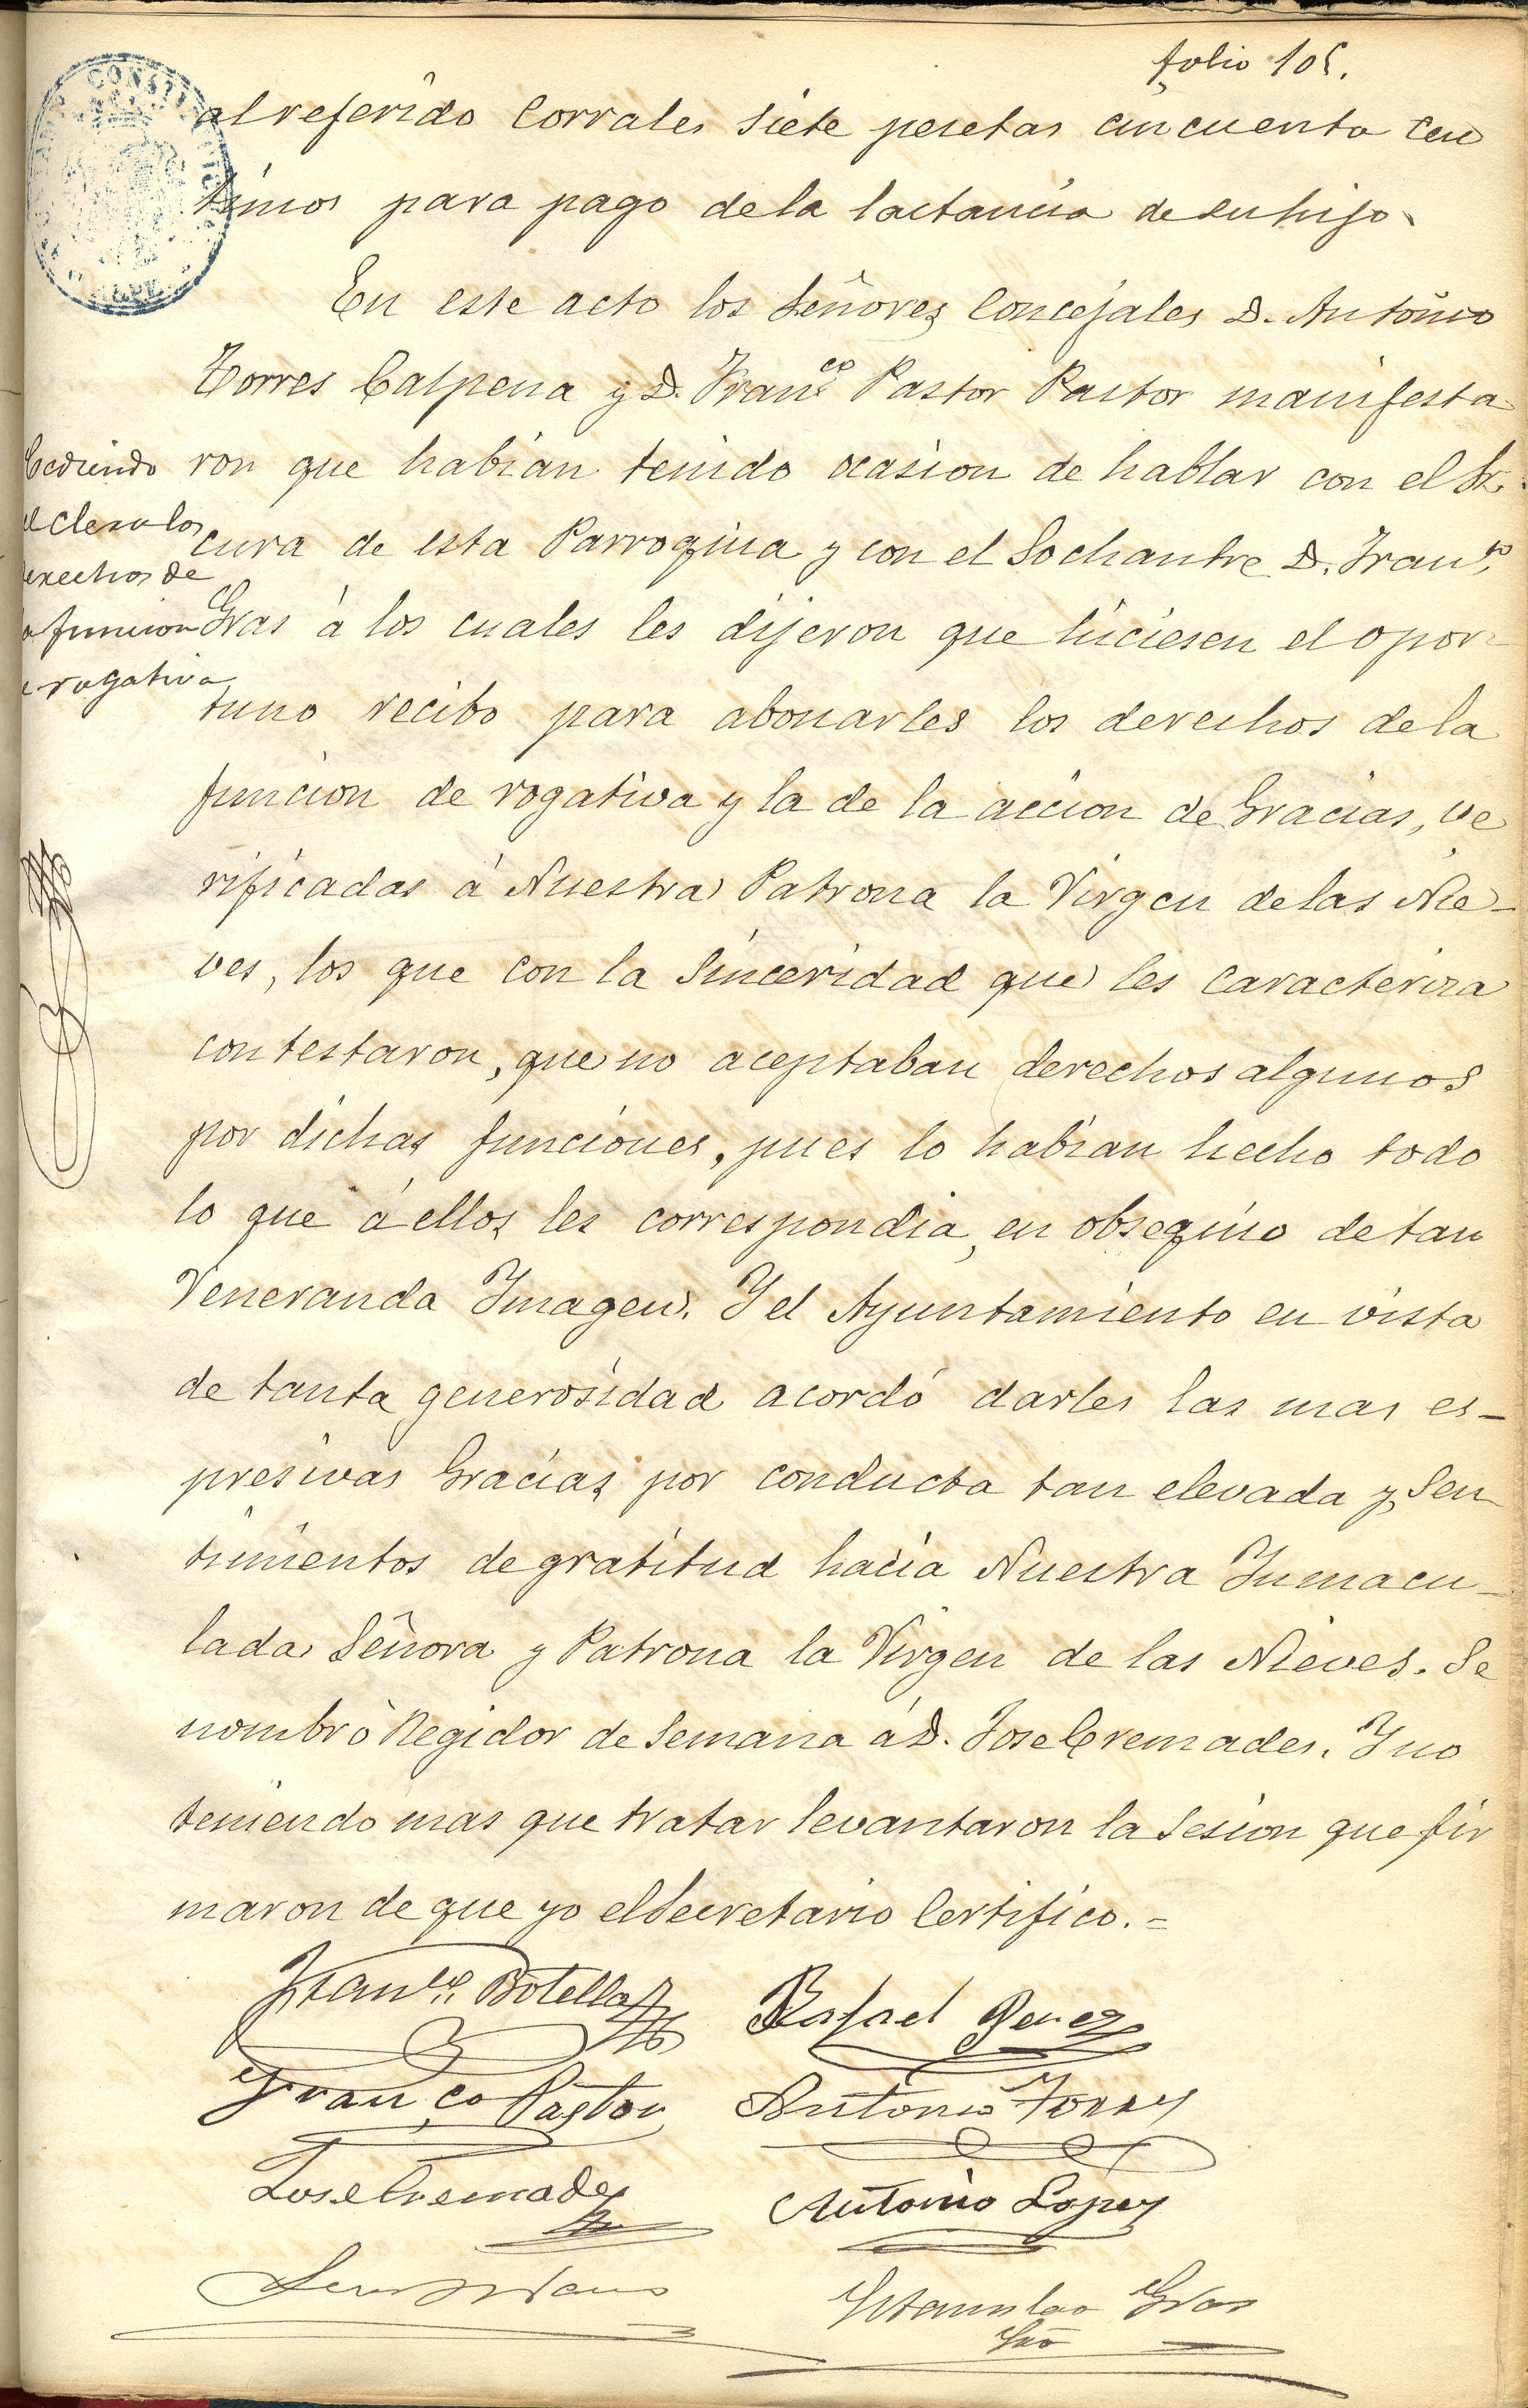 folio 105.
al referido Corrales siete pesetas cincuenta cen
timos para pago de la lactancia de su hijo.
En este acto los Señores Concejales D. Antonio
Torres Calpena y D. Fran.co Pastor Pastor manifesta
ron que habian tenido ocasion de hablar con el Sr.
cura de esta Parroquia y con el Sochantre D. Fran.co
Gras á los cuales les dijeron que hiciesen el opor-
tuno recibo para abonarles los derechos de la
funcion de rogativa y la de la accion de Gracias, ve
rificadas á Nuestra Patrona la Virgen de las Nie-
ves, los que con la sinceridad que les caracteriza
contestaron, que no aceptaban derechos algunos
por dichas funciones, pues lo habian hecho todo
lo que á ellos les correspondia, en obsequio de tan
Veneranda Imagen. Y el Ayuntamiento en vista
de tanta generosidad acordó darles las mas es-
presivas Gracias por conducta tan elevada y sen
timientos de gratitud hacia Nuestra Inmacu-
lada Señora y Patrona la Virgen de las Nieves. Se
nombró Regidor de Semana á D. Jose Cremades. Y no
teniendo mas que tratar levantaron la Sesion que fir
maron de que yo el Secretario Certifico.=
Cediendo
el Clero los
derechos de
la funcion
de rogativa
Fran.co Botella
Rafael Perez
Fran.co Pastor
Antonio Torres
Jose Cremades
Antonio Lopez
Estanislao Gras
Srio